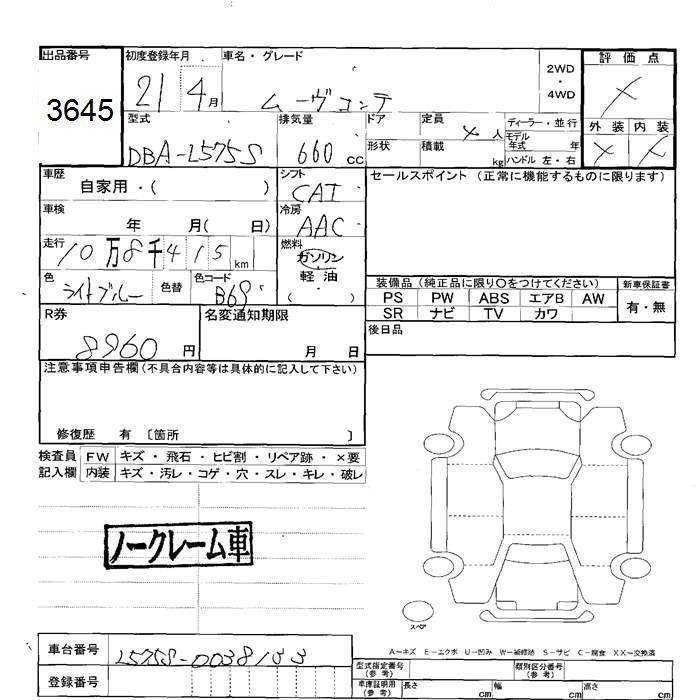 出品番号
3645
初度登録年月
21 4月
車名・グレード
ムーヴコンテ
2WD
・
4WD
評価点
×
外装 内装
× ×
型式
DBA-L575S
排気量
660 cc
ドア
形状
定員
× 人
積載
kg
ディーラー・並行
モデル
年式 年
ハンドル 左・右
車歴
自家用・( )
シフト
CAT
セールスポイント (正常に機能するものに限ります)
車検
年 月( 日)
冷房
AAC
走行
10万8千415km
燃料
ガソリン
軽・油
( )
色
ライトブルー
色替
色コード
B69
装備品 (純正品に限り〇をつけてください)
PS PW ABS エアB AW
SR ナビ TV カワ
新車保証書
有・無
R券
8960円
名変通知期限
月 日
後日品
注意事項申告欄(不具合内容等は具体的に記入して下さい)
修復歴 有 〔箇所 〕
検査員 FW キズ・飛石・ヒビ割・リペア跡・×要
記入欄 内装 キズ・汚レ・コゲ・穴・スレ・キレ・破レ
ノークレーム車
スペア
A〜キズ E〜エクボ U〜凹み W〜補修跡 S〜サビ C〜腐食 XX〜交換済
車台番号
L575S-0038133
登録番号
型式指定番号
(参考)
類別区分番号
(参考)
車庫証明用
(参考)
長さ cm
幅 cm
高さ cm